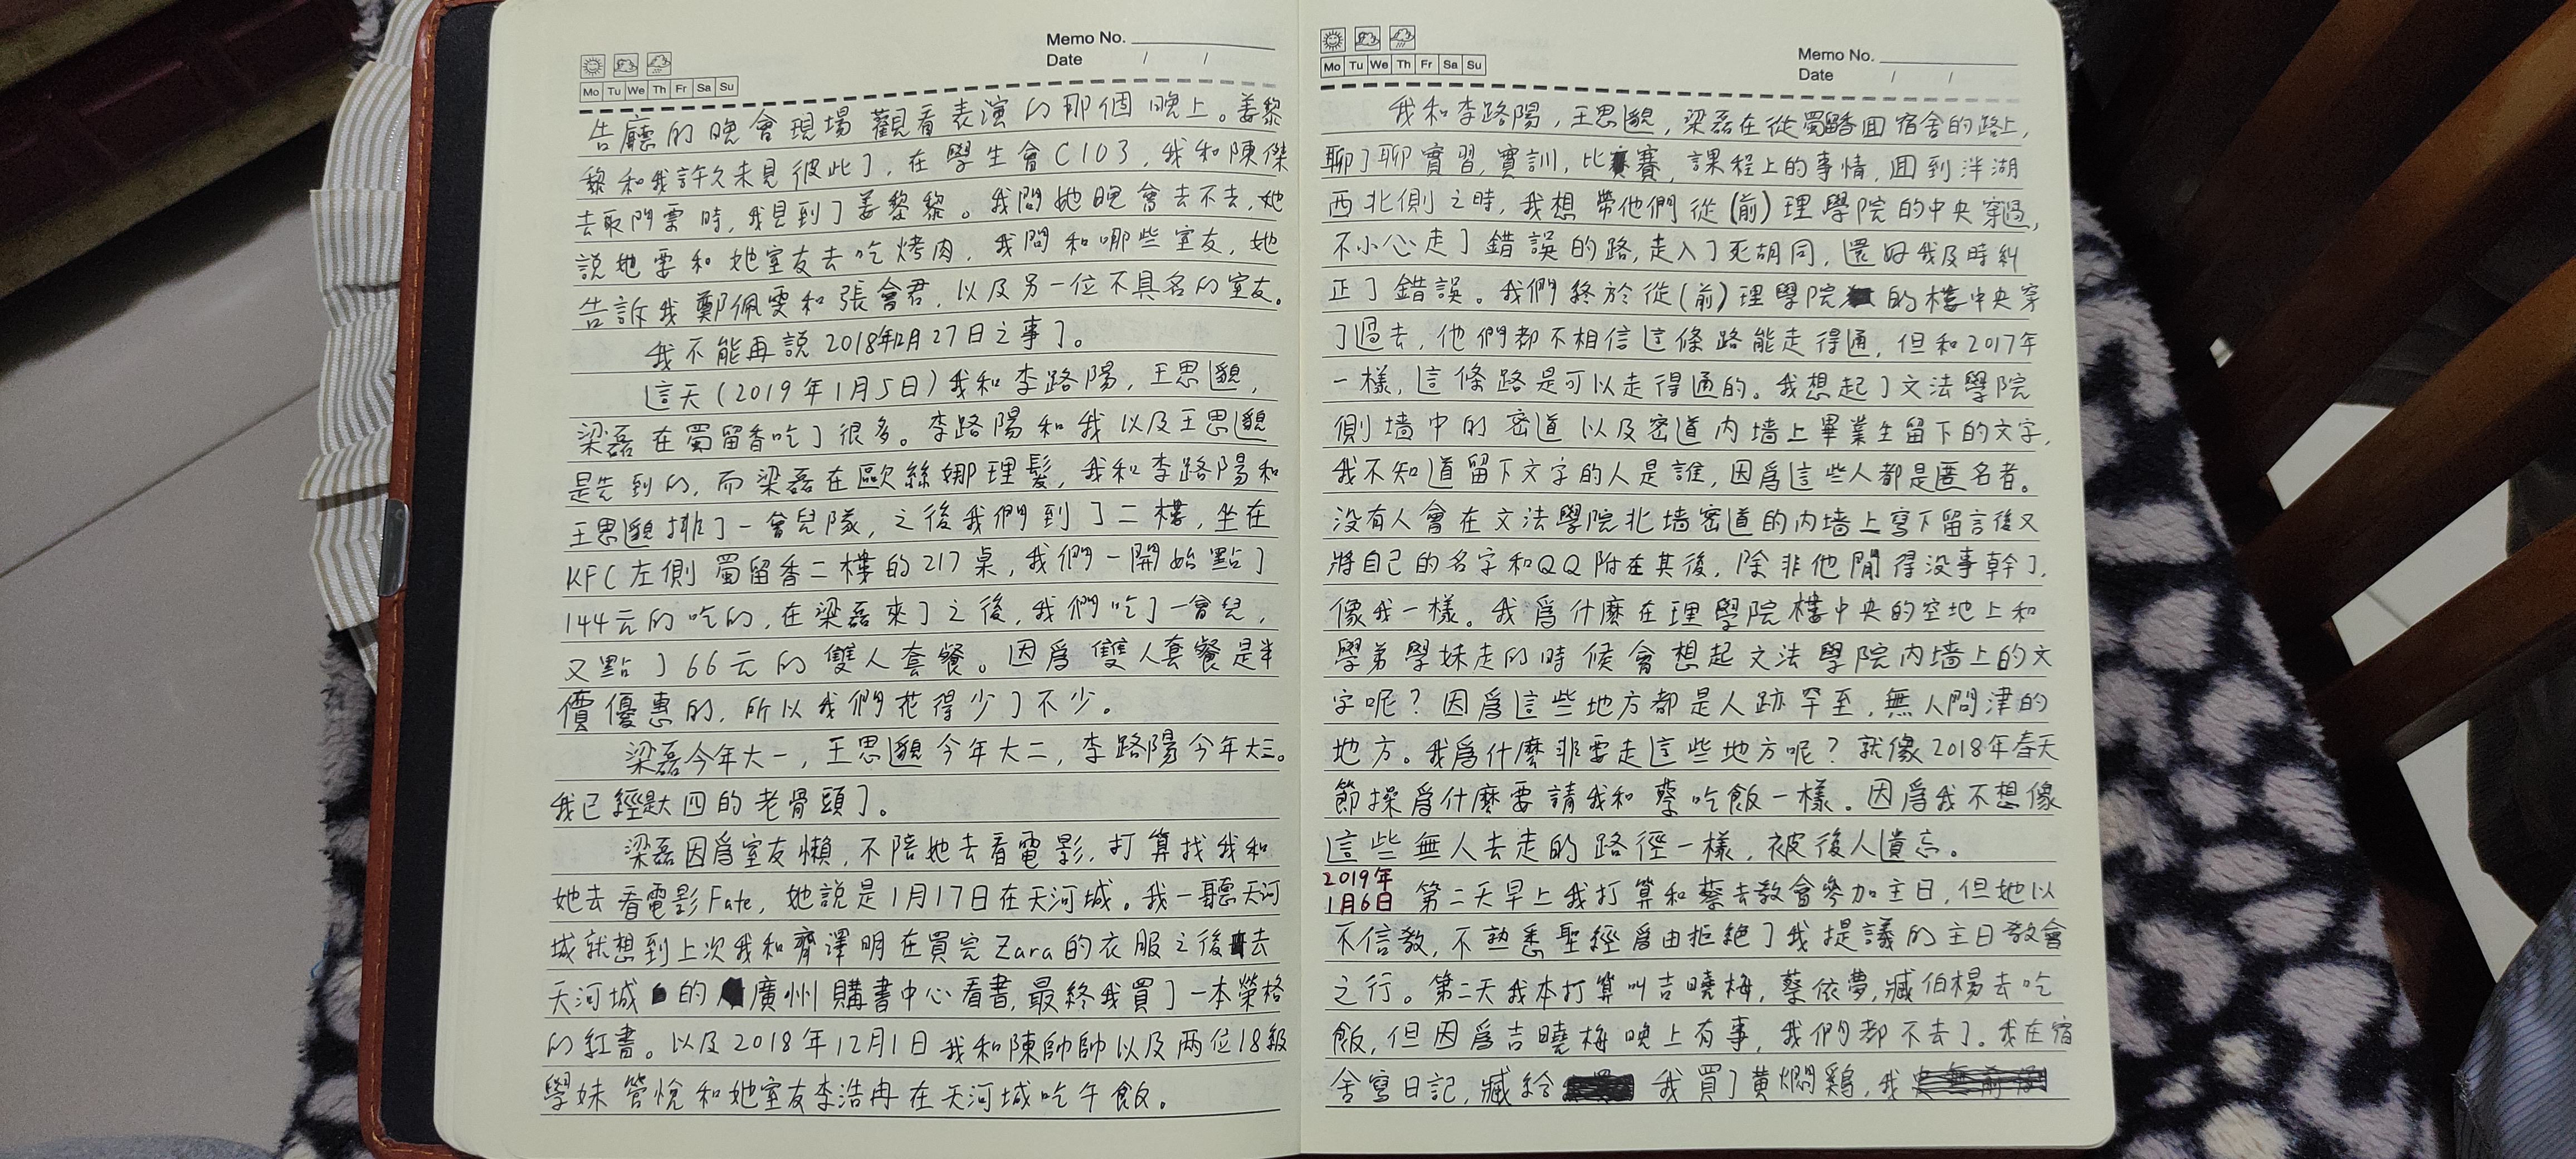 Memo No.
Date / /
Mo Tu We Th Fr Sa Su
告廳的晚會現場觀看表演的那個晚上。姜黎
黎和我許久未見彼此了，在學生會C103，我和陳傑
去取門票時，我見到了姜黎黎。我問她晚會去不去，她
説她要和她室友去吃烤肉，我問和哪些室友，她
告訴我鄭佩雯和張會君，以及另一位不具名的室友。
我不能再説2018年12月27日之事了。
這天(2019年1月5日)我和李路陽，王思邈，
梁磊在蜀留香吃了很多。李路陽和我以及王思邈
是先到的，而梁磊在歐絲娜理髮，我和李路陽和
王思邈排了一會兒隊，之後我們到了二樓，坐在
KFC左側蜀留香二樓的217桌，我們一開始點了
144元的吃的，在梁磊來了之後，我們吃了一會兒，
又點了66元的雙人套餐。因爲雙人套餐是半
價優惠的，所以我們花得少了不少。
梁磊今年大一，王思邈今年大二，李路陽今年大三。
我已經是大四的老骨頭了。
梁磊因爲室友懶，不陪她去看電影，打算找我和
她去看電影Fate，她説是1月17日在天河城。我一聽天河
城就想到上次我和齊澤明在買完Zara的衣服之後去
天河城的廣州購書中心看書，最終我買了一本榮格
的紅書。以及2018年12月1日我和陳帥帥以及兩位18級
學妹管悅和她室友李浩冉在天河城吃午飯。
Memo No.
Date / /
Mo Tu We Th Fr Sa Su
我和李路陽，王思邈，梁磊在從蜀留香回宿舍的路上，
聊了聊實習，實訓，比賽，課程上的事情，回到泮湖
西北側之時，我想帶他們從(前)理學院的中央穿過，
不小心走了錯誤的路，走入了死胡同，還好我及時糾
正了錯誤。我們終於從(前)理學院的樓中央穿
了過去，他們都不相信這條路能走得通，但和2017年
一樣，這條路是可以走得通的。我想起了文法學院
側墻中的密道以及密道内墻上畢業生留下的文字，
我不知道留下文字的人是誰，因爲這些人都是匿名者。
没有人會在文法學院北墻密道的内墻上寫下留言後又
將自己的名字和QQ附在其後，除非他閒得没事幹了，
像我一樣。我爲什麼在理學院樓中央的空地上和
學弟學妹走的時候會想起文法學院内墻上的文
字呢？因爲這些地方都是人跡罕至，無人問津的
地方。我爲什麼非要走這些地方呢？就像2018年春天
節操爲什麼要請我和蔡吃飯一樣。因爲我不想像
這些無人去走的路徑一樣，被後人遺忘。
2019年
1月6日 第二天早上我打算和蔡去教會參加主日，但她以
不信教，不熟悉聖經爲由拒絶了我提議的主日教會
之行。第二天我本打算叫吉曉梅，蔡依夢，臧伯楊去吃
飯，但因爲吉曉梅晚上有事，我們都不去了。我在宿
舍寫日記，臧給我買了黄燜鷄，我